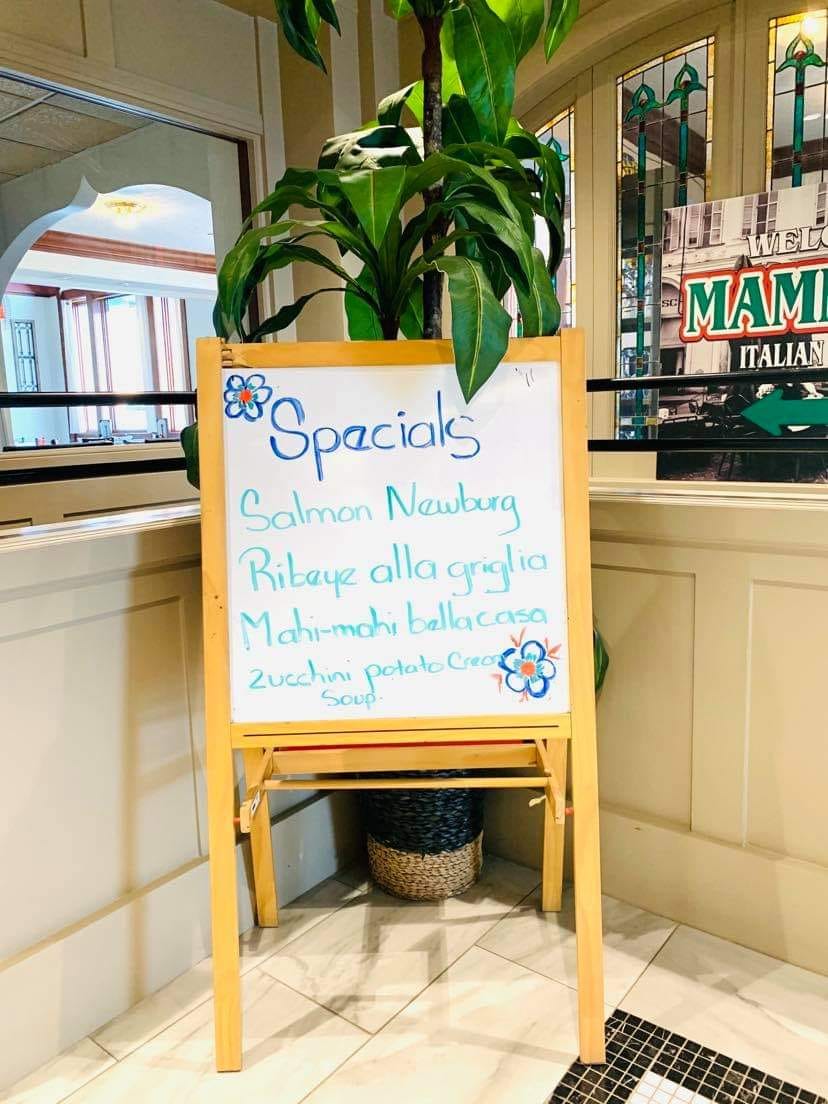 Specials
Salmon Newburg
Ribeye alla griglia
Mahi-mahi bella casa
Zucchini potato Cream
Soup.
WELC
MAM
ITALIAN